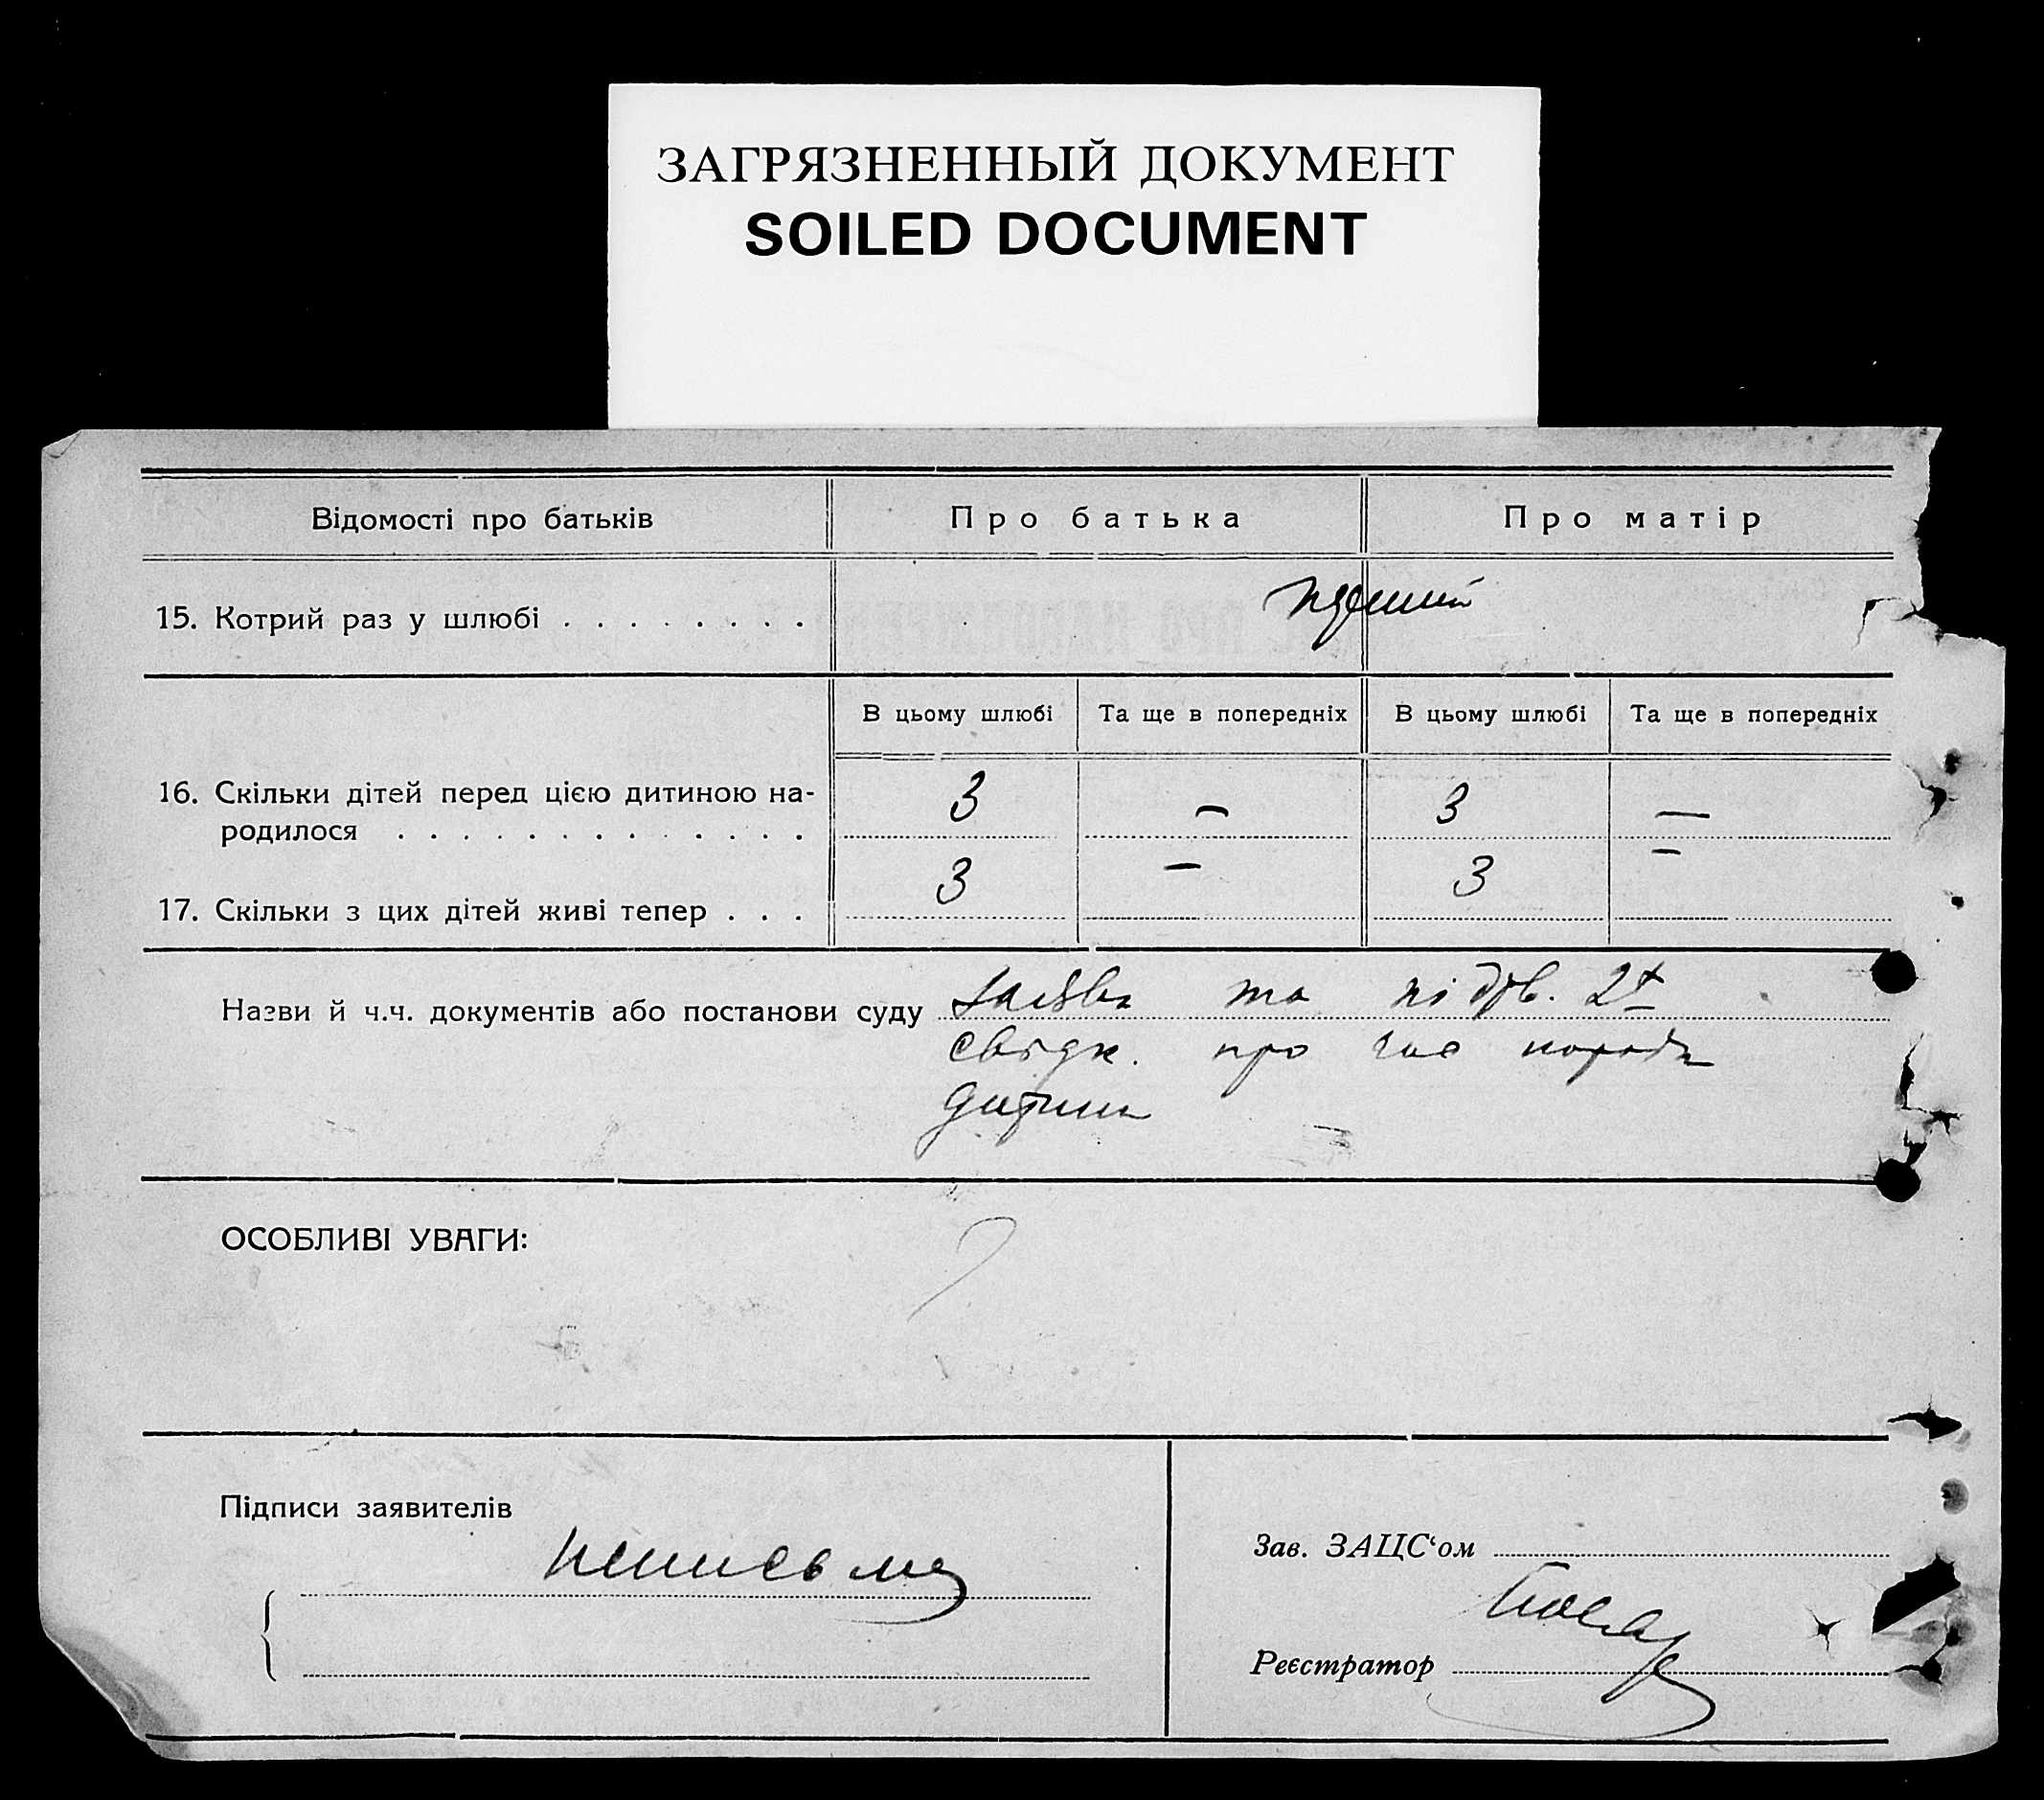 ЗАГРЯЗНЕННЫЙ ДОКУМЕНТ
SOILED DOCUMENT
Відомості про батьків
Про батька
Про матір
15. Котрий раз у шлюбі . . . . . . . .
перший
В цьому шлюбі
Та ще в попередніх
В цьому шлюбі
Та ще в попередніх
16. Скільки дітей перед цією дитиною на-
родилося . . . . . . . . . . . . .
3 — 3 —
17. Скільки з цих дітей живі тепер . . .
3 — 3 —
Назви й ч.ч. документів або постанови суду заява та підтв. 2х
свідк. про час народж
дитини
ОСОБЛИВІ УВАГИ:
Підписи заявителів
неписьмен
Зав. ЗАЦС‘ом
Реєстратор